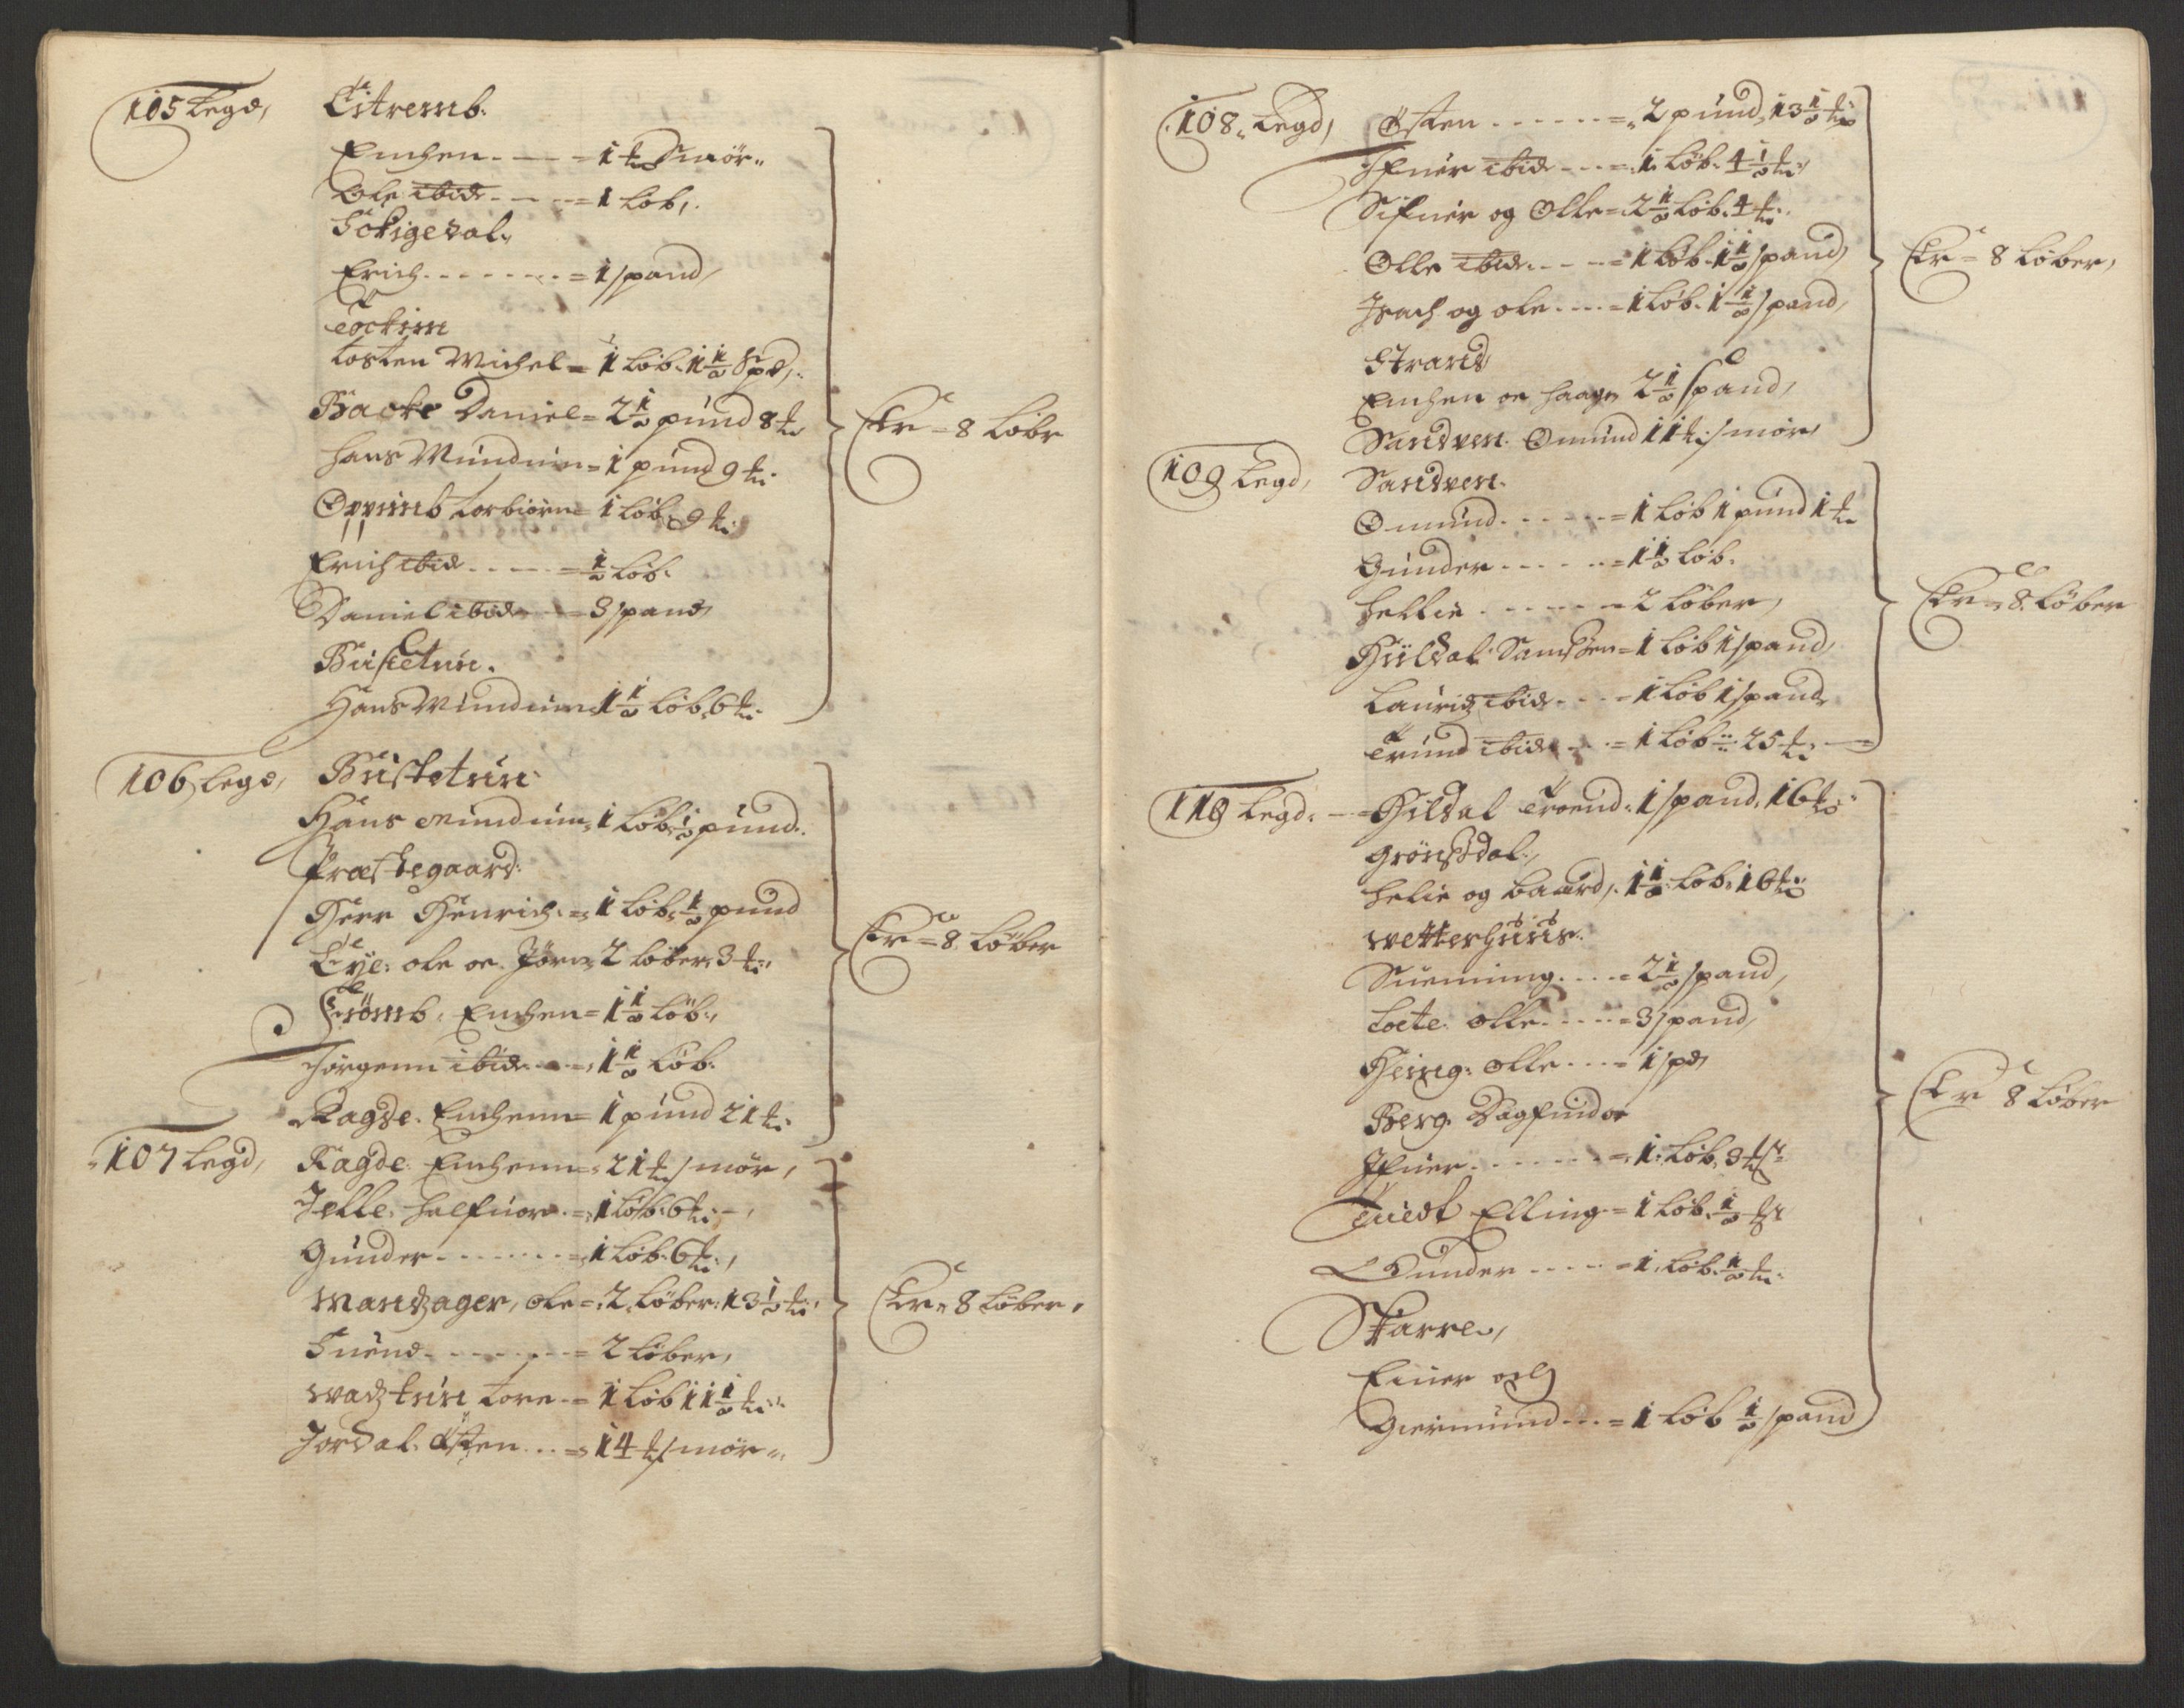 105 Legd, Eitremb.
Enchen. - - = 1 ℔ Smör„
Ole ibid. - - - = 1 Løb,.
Tockigedal„
Erich. - - - - - - = 1 spand,
Tockim
Tosten Michel = 1 Løb. 1½ Spd,.
Backe Daniel = 2½ pund 8 ℔
Hans Mundium = 1 pund 9 ℔.
Oppimb Torbiørn = 1 Løb. 9 ℔.
Erich ibid. - - - = ½ Løb.
Daniel ibid. - - = 3 spand,
Bustetun.
Hans Mundium 1½ Løb. 6 ℔.
Er = 8 Løbr
106 Legd, Bustetun.
Hans Mundium, 1 Løb. ½ pund.
Præstegaard:
Herr Henrich. = 1 Løb. ½ pund
Eye: ole oc. Jörn, 2 Løber. 3 ℔.
Frömb. Enchen = 1½ Løb.,
Jörgenn ibid. - - = 1½ Løb.
Ragde. Enchenn = 1 pund 21 ℔.
Er = 8 Løber
107 Legd, Ragde. Enchenn = 21 ℔ smör,
Jelle. Halfuor. = 1 Løb. 6 ℔.
Gunder. - - - - - = 1 Løb. 6 ℔.,
Mandzager, ole = 2 Løber. 13½ ℔.
Suend. - - - - - = 2 Løber,
Wadztun Tore. = 1 Løb 11½ ℔.
Jordal. Østen... = 14 ℔ smör„
Er = 8 Løber,
108. Legd, Østen - - - - - = 2 pund, 13½ ℔
Ifuer ibid - - - = 1. Løb. 4½ ℔,
Sifuer og Olle = 2½ Løb. 4 ℔.
Olle ibid. - - - = 1 Løb. 1½ spand,
Isach og ole. - - - = 1 Løb. 1½ spand,
Strand,
Enchen oc Haagen 2½ spand,
Sandven. Omund 11 ℔. smör,
Er = 8 Løber,
109 Legd, Sandven.
Omund. - - - - - = 1 Løb 1 pund 1 ℔
Gunder - - - - - = 1½ Løb.
Hellie - - - - - = 2 Løber,
Hildal Samson = 1 Løb 1 spand,
Lauridz ibid. - - - = 1 Løb 1 spand,
Trund ibid. - - - = 1 Løb 25 ℔.
Er = 8. Løber
110 Legd. - Hildal Troend: 1 spand. 16 ℔.
Grönsdal.,
Helie og Baard,. 1½ Løb. 16 ℔
Wetterhuus.
Suenning. - - - = 2½ spand,
Loete. olle. - - - = 3 spand,
Heing: olle. - - - = 1 spd,
Berg. Dagfind oc
Ifuer. - - - - - = 1. Løb. 3 ℔
Tuedt Elling. = 1 Løb. ½ ℔
Gunder - - - = 1. Løb. ½ ℔.
Skarre,
Einer och
Giermund. - - = 1 Løb ½ spand
Er 8 Løber